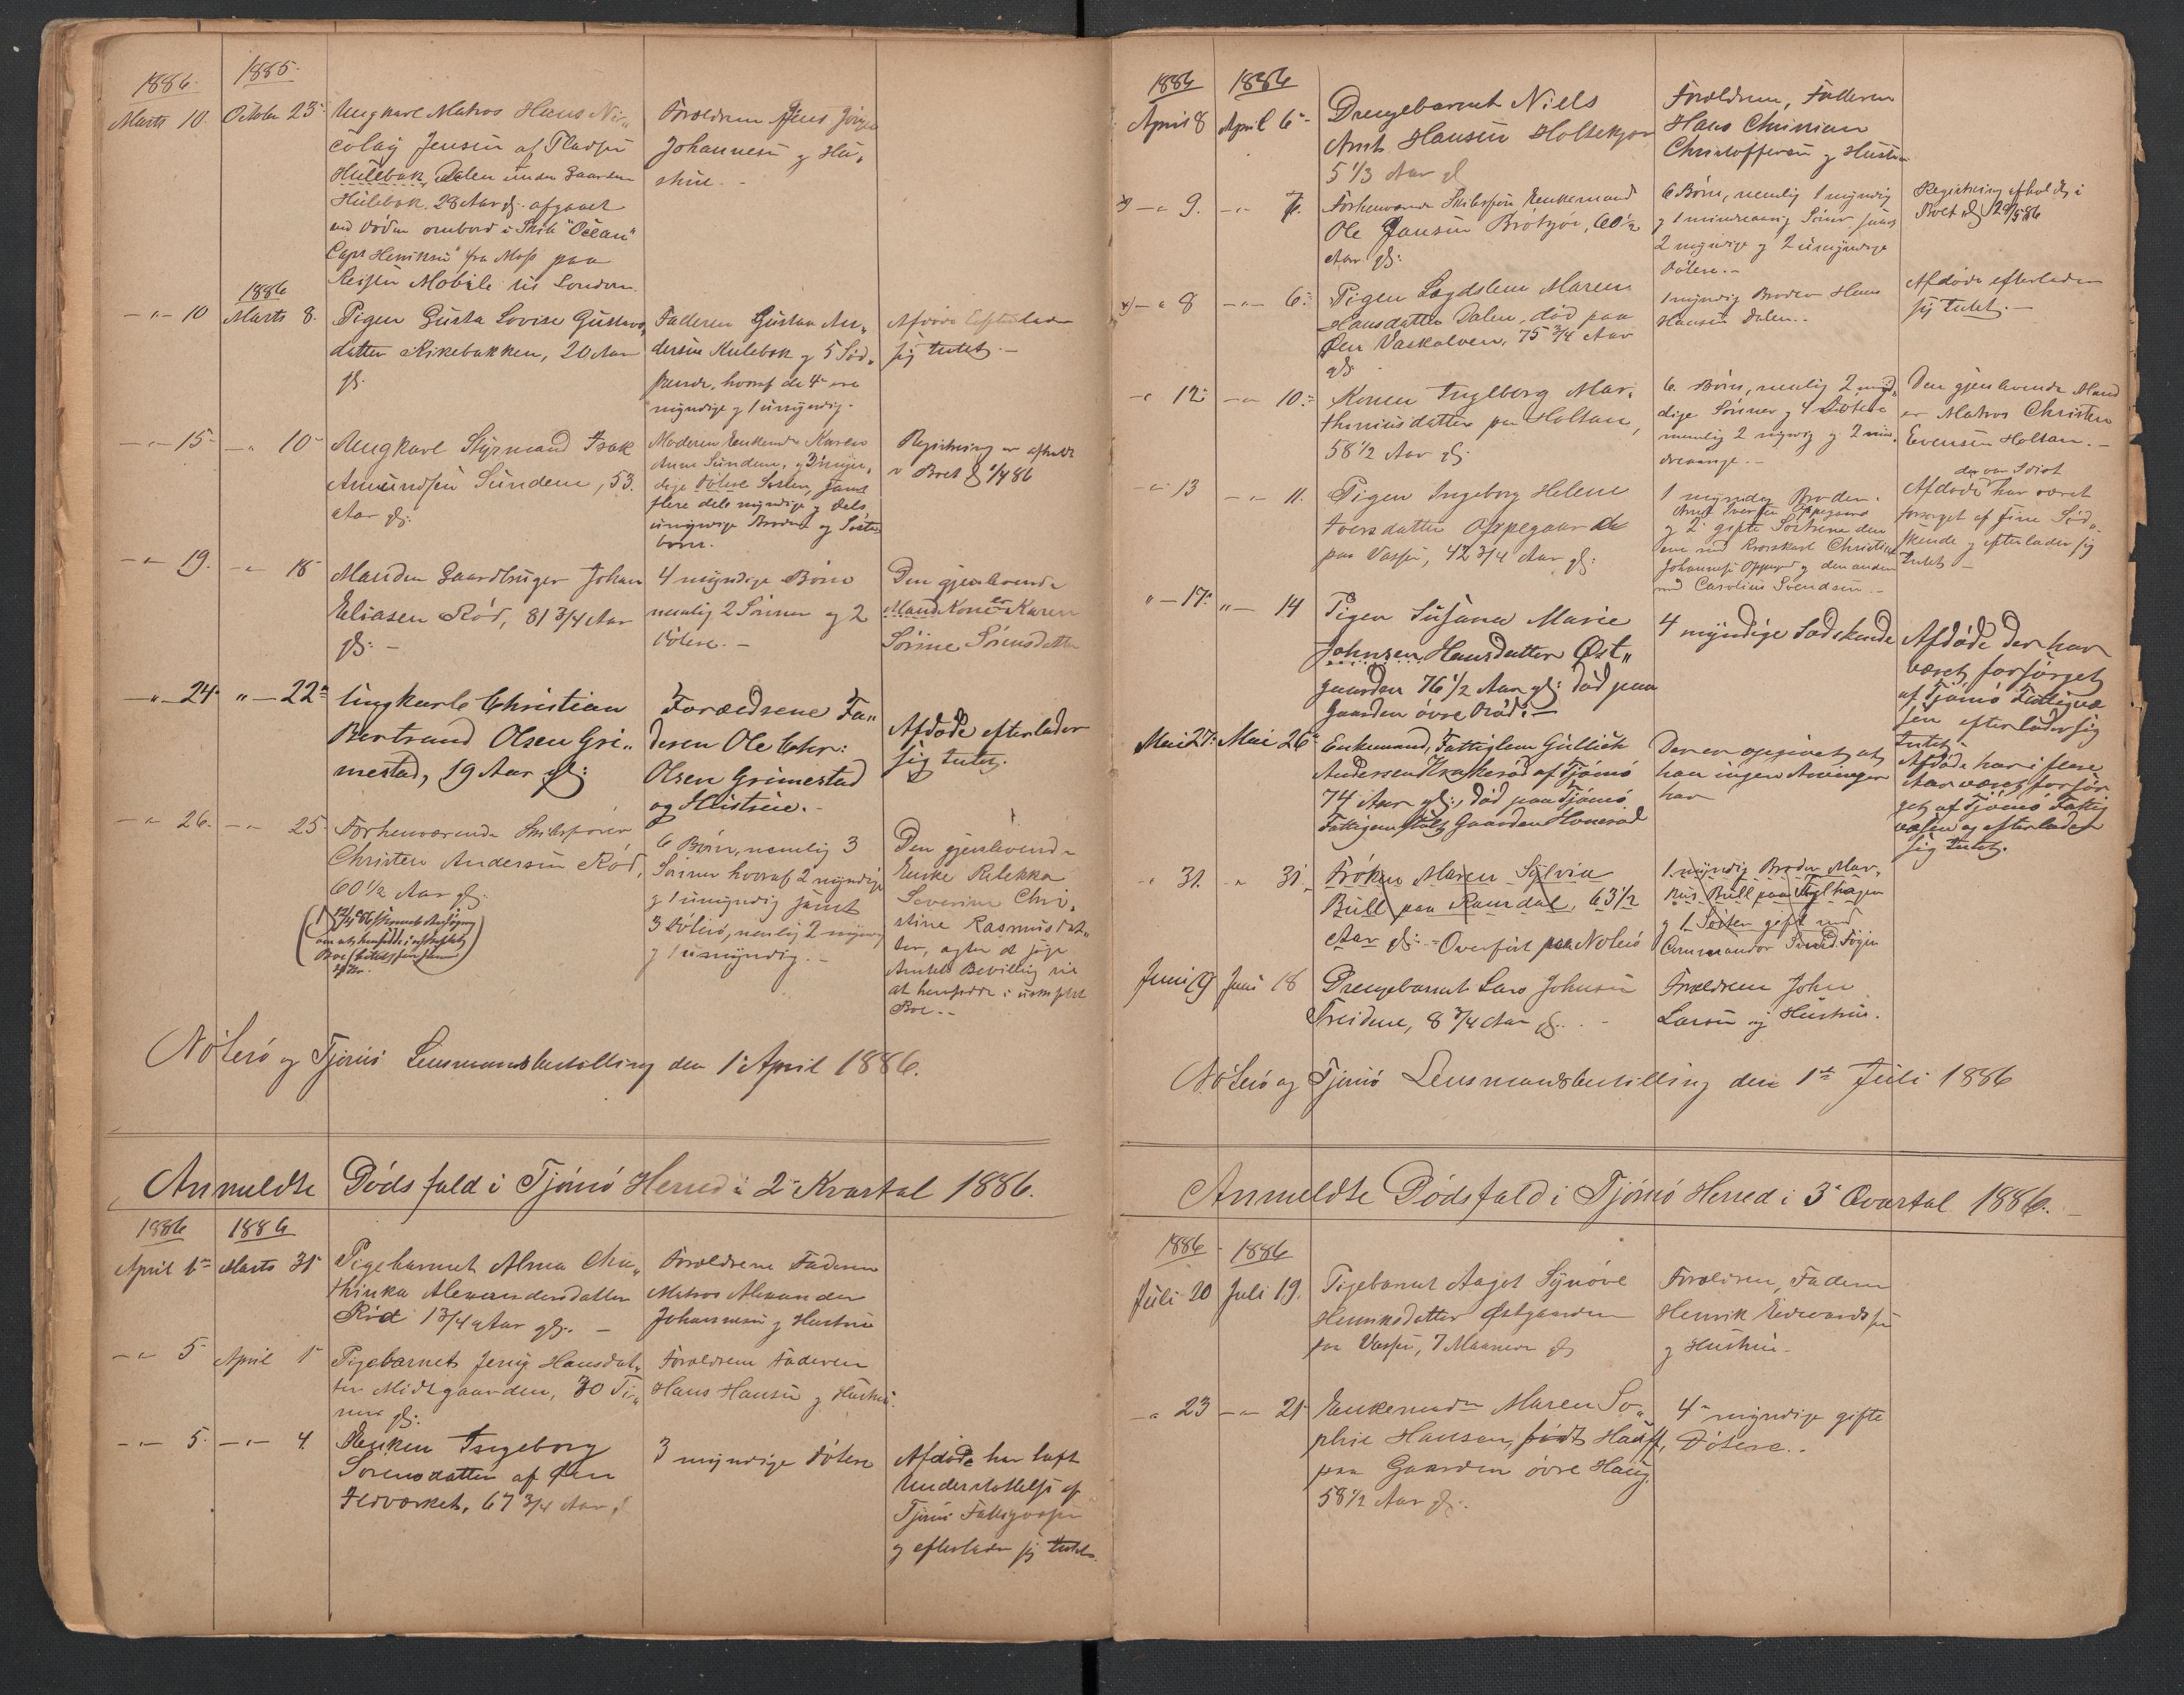 1886. 1885.
Marts 10. October 23 Ungkarl Matros Hans Ni„
colay Jensen af Pladsen
Hulebak, Dalen under Gaarden
Hulebak. 28 Aar gl. afgaaet
ved Döden ombord i Skib "Ocean"
Capt Henriksen fra Moss paa
Reisen Mobile til London.
Forældrene Jens Jörgen
Johannesen og Hu„
stru. -
1886
-„- 10 Marts 8. Pigen Gusta Lovise Gustavs„
datter Rikebakken, 20 Aar
gl.
Faderen Gustav An„
dersen Hulebak og 5 Söd„
skende, hvoraf de 4 ere
myndige og 1 umyndig.
Afdöde Efterlader
sig Intet. -
-„- 15 -„- 10 Ungkarl Styrmand Isak
Amundsen Sundene, 53
Aar gl.
Moderen Enkemd. Karen
Anne Sundene, og 3 myn„
dige Söstre, samt
flere dels myndige og dels
umyndige Broder og Söster
born.
Registrering er afholdt
i Boet d. 1/4 86
-„- 19. -„- 18 Manden Gaardbruger Johan
Eliasen Röd, 81 3/4 Aar
gl. -
4 myndige Börn
nemlig 2 Sönner og 2
Dötere. -
Den gjenlevende
Mand Kone er Karen
Sörine Sörensdatter
-„- 24 „- 22 Ungkarl Christian
Bertrand Olsen Gri„
mestad, 19 Aar gl:
Foreldrene Fa„
deren Ole Chr:
Olsen Grimestad
og Hustrue. -
Afdöde efterlader
sig Intet.
-„- 26. -„- 25 Forhenværende Skibsförer
Christen Andersen Röd,
60 1/2 Aar gl.
6 Börn, nemlig 3
Sönner hvoraf 2 myndige
og 1 umyndig samt
3 Dötre, nemlig 2 myndig
og 1 umyndig. -
Den gjenlevende
Enke Rebekka
Severine Chri„
stine Rasmusdat„
ter, agter at söge
Amtets Bevilling til
at hensidde i uskiftet
Boe. -
Nöterö og Tjömö Lensmandsbestilling den 1 April 1886.
Anmeldte Dödsfald i Tjömö Herred i 2 Kvartal 1886.
1886 1886
April 1 Marts 31 Pigebarnet Alma
Alexandersdatter
Röd 1 3/4 Aar gl. -
Forældrene Faderen
Matros Alexander
Johannesen og Hustrue
-„- 5 April 1 Pigebarnet Jenny Hansdat„
ter Midtgaarden, 30 Ti„
mer gl:
Forældrene Faderen
Hans Hansen og Hustru.
-„- 5. -„- 4. Enken Ingeborg
Sörensdatter af Öen
Ildværket, 67 3/4 Aar gl
3 myndige Dötere
Afdöde har haft
Understöttelse af
Tjömö Fattigvæsen
og efterlader sig Intet.
1886 1886
April 8 April 6 Drengebarnet Niels
Anth. Hansen Holtekjær
5 1/3 Aar gl
Forældrene, Faderen
Hans Christian
Christoffersen og Hustru
-„- 9. -„- 7. Forhenværende Skibsförer Enkemand
Ole Jansen Brötsjö, 60 1/2
Aar gl:
6 Börn, nemlig 1 myndig
og 1 mindreaarig Sönn samt
2 myndige og 2 umyndige
Dötere. -
Registrering afholdt i
Boet d. 29/5 86
-„- 8 -„- 6 Pigen Lægdslem Maren
Hansdatter Dalen, död paa
Öen Vaskalven, 75 3/4 Aar
gl.
1 myndig Broder Hans
Hansen Dalen. -
Afdöde efterlader
sig Intet. -
-„- 12 -„- 10 Konen Ingeborg Mar„
thiniusdatter paa Holtan,
58 1/2 Aar gl:
6. Börn, nemlig 2 myn„
dige Sönner og 4 Dötere
nemlig 2 myndig og 2 min„
dreaarige. -
Den gjenlevende Mand
er Matros Christen
Evensen Holtan. -
-„- 13 -„- 11. Pigen Ingeborg Helene
Iversdatter Oppegaarden
paa Vasser, 42 3/4 Aar gl:
1 myndig Broder
Anth Iversen Oppegaard
og 2 gifte Söstrene den
ene med Christian
Johannesen Oppegrd og den anden
med Carolius Svendsen. -
der var Idiot
Afdöde har været
forsörget af sine Söd„
skende og efterlader sig
Intet -
„- 17. „- 14 Pigen Susana Marie
Johnsen, Hansdatter Öst„
gaarden 76 1/2 Aar gl: död paa
Gaarden övre Röd. -
4 myndige Sodskende
Afdöde der har
været forsörget
af Tjömö Fattigvæ
sen efterlader sig
Intet.
Mai 27. Mai 26 Enkemand, Fattiglem Gullich
Andersen Krukeröd af Tjömö
74 Aar gl:, död paa Tjömö
Fattigemstalt Gaarden Honeröd
Der er opgivet at
han ingen Arvinger
har
Afdöde har i flere
Aar været forsör
get af Tjömö Fattig
væsen og efterlader
sig Intet.
-„ 31. -„ 31. Fröken Maren Sylvia
Bull paa Ramdal, 63 1/2
Aar gl: - Overfört paa Nöterö
1 myndig Broder Mar„
Bull paa Teglhagen
og 1 Söster gift med
Commandör Smed.
Juni 19 Juni 18 Drengebarnet Lars Johnsen
Treidene, 8 3/4 Aar gl. -
Forældrene John
Larsen og Hustrue.
Nöterö og Tjömö Lensmandsbestilling den 1te Juli 1886
Anmeldte Dödsfald i Tjömö Herred i 3 Qvartal 1886. -
1886 1886
Juli 20 Juli 19. Pigebarnet Aagot Synöve
Henriksdatter Östgaarden
paa Vasser, 7 Maaneder gl
Forældrene, Faderen
Henrik Edvardsen
og Hustrue.
-„ 23 -„- 21 Enkemadm Maren So„
phie Hansen, födt Hauff,
paa Gaarden övre Haug
58 1/2 Aar gl.
4 myndige gifte
Dötere. .